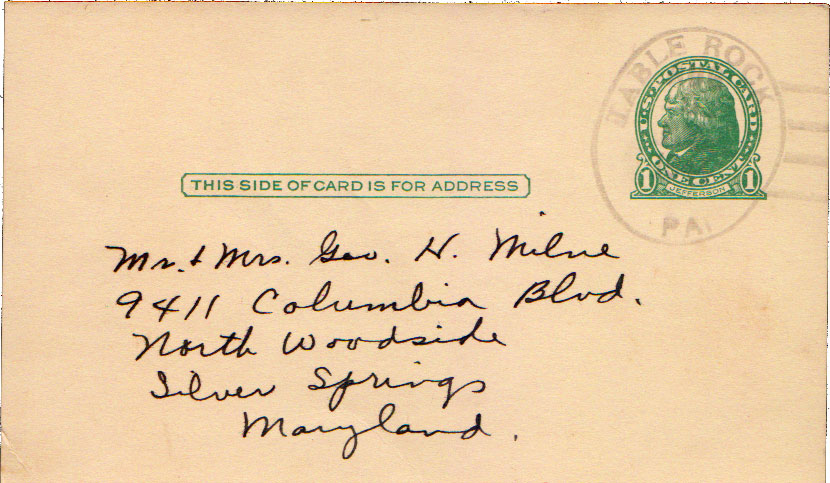 TABLE ROCK
PA.
U.S. POSTAL CARD
ONE CENT
1 JEFFERSON 1
THIS SIDE OF CARD IS FOR ADDRESS
Mr. & Mrs. Geo. H. Milne
9411 Columbia Blvd.
North Woodside
Silver Springs
Maryland.